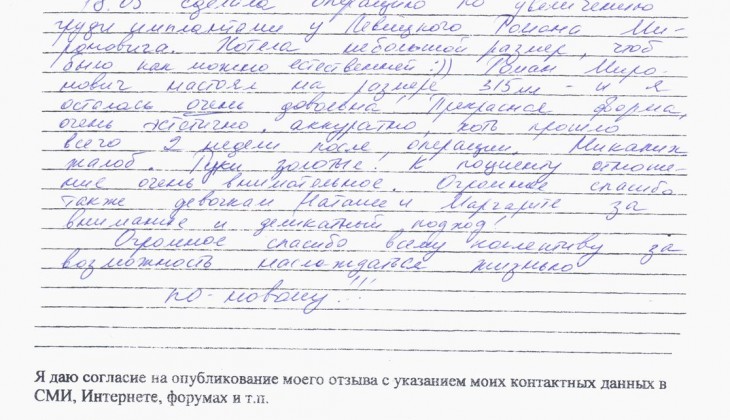 18.03 сделала операцию по увеличению
груди имплантами у Левицкого Романа Ми-
роновича. Хотела небольшой размер, чтоб
было как можно естественней :)) Роман Миро
нович настоял на размере 315 мл - и я
осталась очень довольна! Прекрасная форма,
очень эстетично, аккуратно, хоть прошло
всего 2 недели после операции. Никаких
жалоб. Руки золотые! К пациенту отноше-
ние очень внимательное. Огромное спасибо
также девочкам Наташе и Маргарите за
внимание и деликатный подход!
Огромное спасибо всему коллективу за
возможность наслаждаться жизнью
по-новому!!!
Я даю согласие на опубликование моего отзыва с указанием моих контактных данных в
СМИ, Интернете, форумах и т.п.